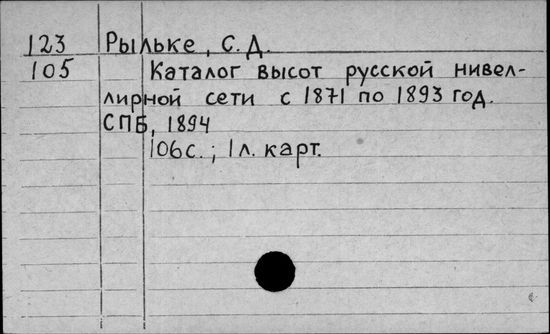 123 Рыльке, С. Д.
105 Каталог высот русской нивел-
лирной сети с 1871 по 1893 год.
СПБ, 1894
106с.; 1л. карт.